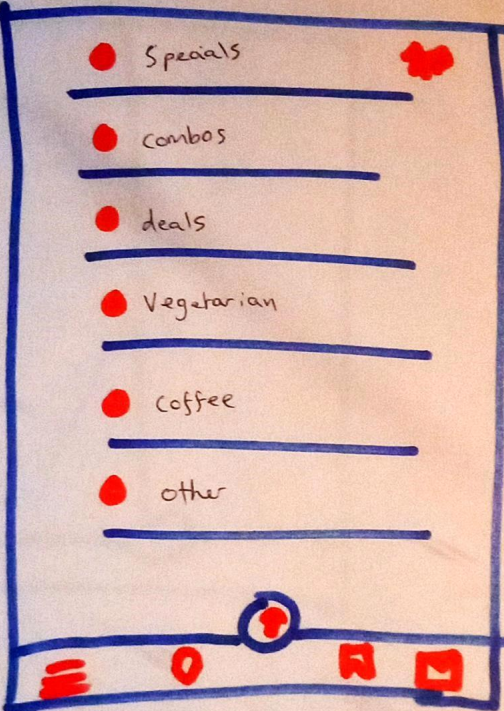 Specials
combos
deals
Vegetarian
coffee
other